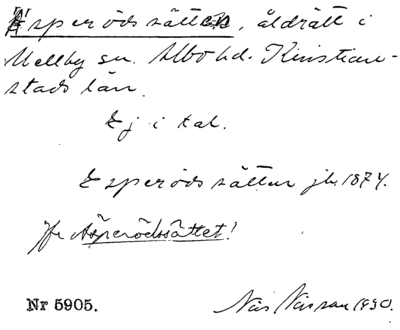 Esperödssätten, åldrätt i
Mellby sn. Albo hd. Kristian-
stads län.
Ej i tal.
Esperödssätten jb. 1874.
Jfr Äsperödssättet!
Nr 5905.
Nils 1930.